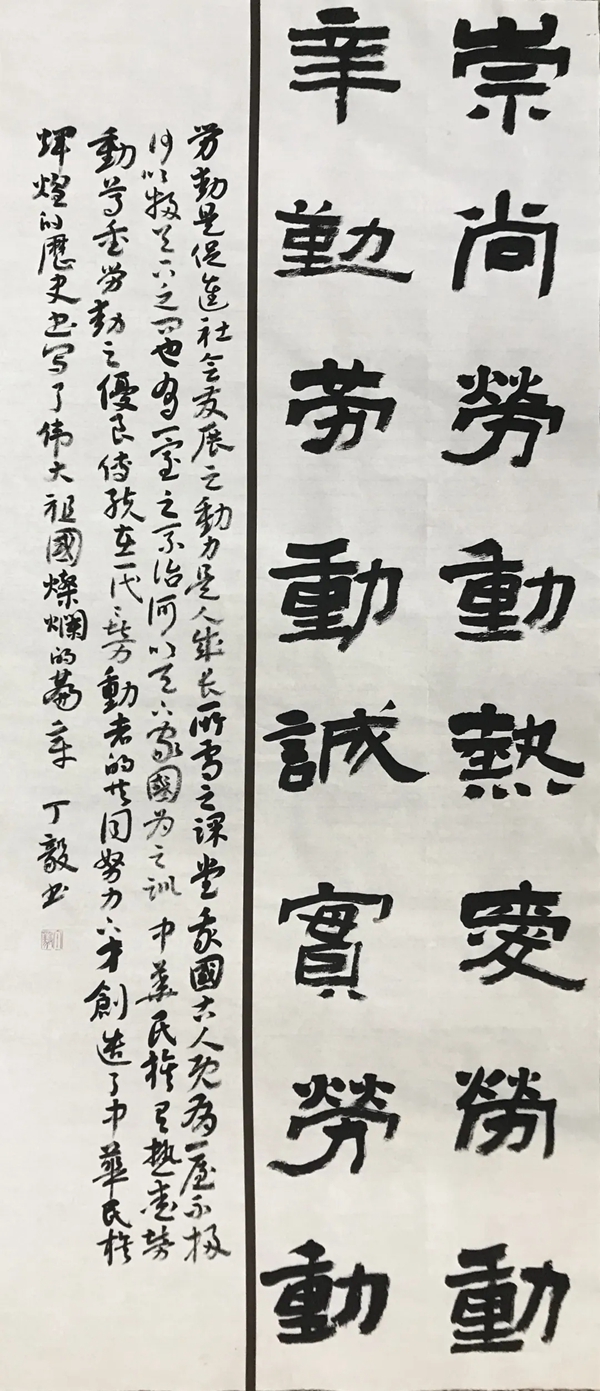 崇尚勞動熱愛勞動
辛勤劳動誠實勞動
劳動是促進社会发展之動力是人成长所需之課堂我國古人既有一屋不扫
何以扫天下之问也有一室之不治何以天下家國为之訓中華民族有热爱劳
動尊重劳動之優良傳統在一代々劳動者的共同努力下才創造了中華民族
輝煌的歷史书写了伟大祖國燦爛的篇章 丁毅书